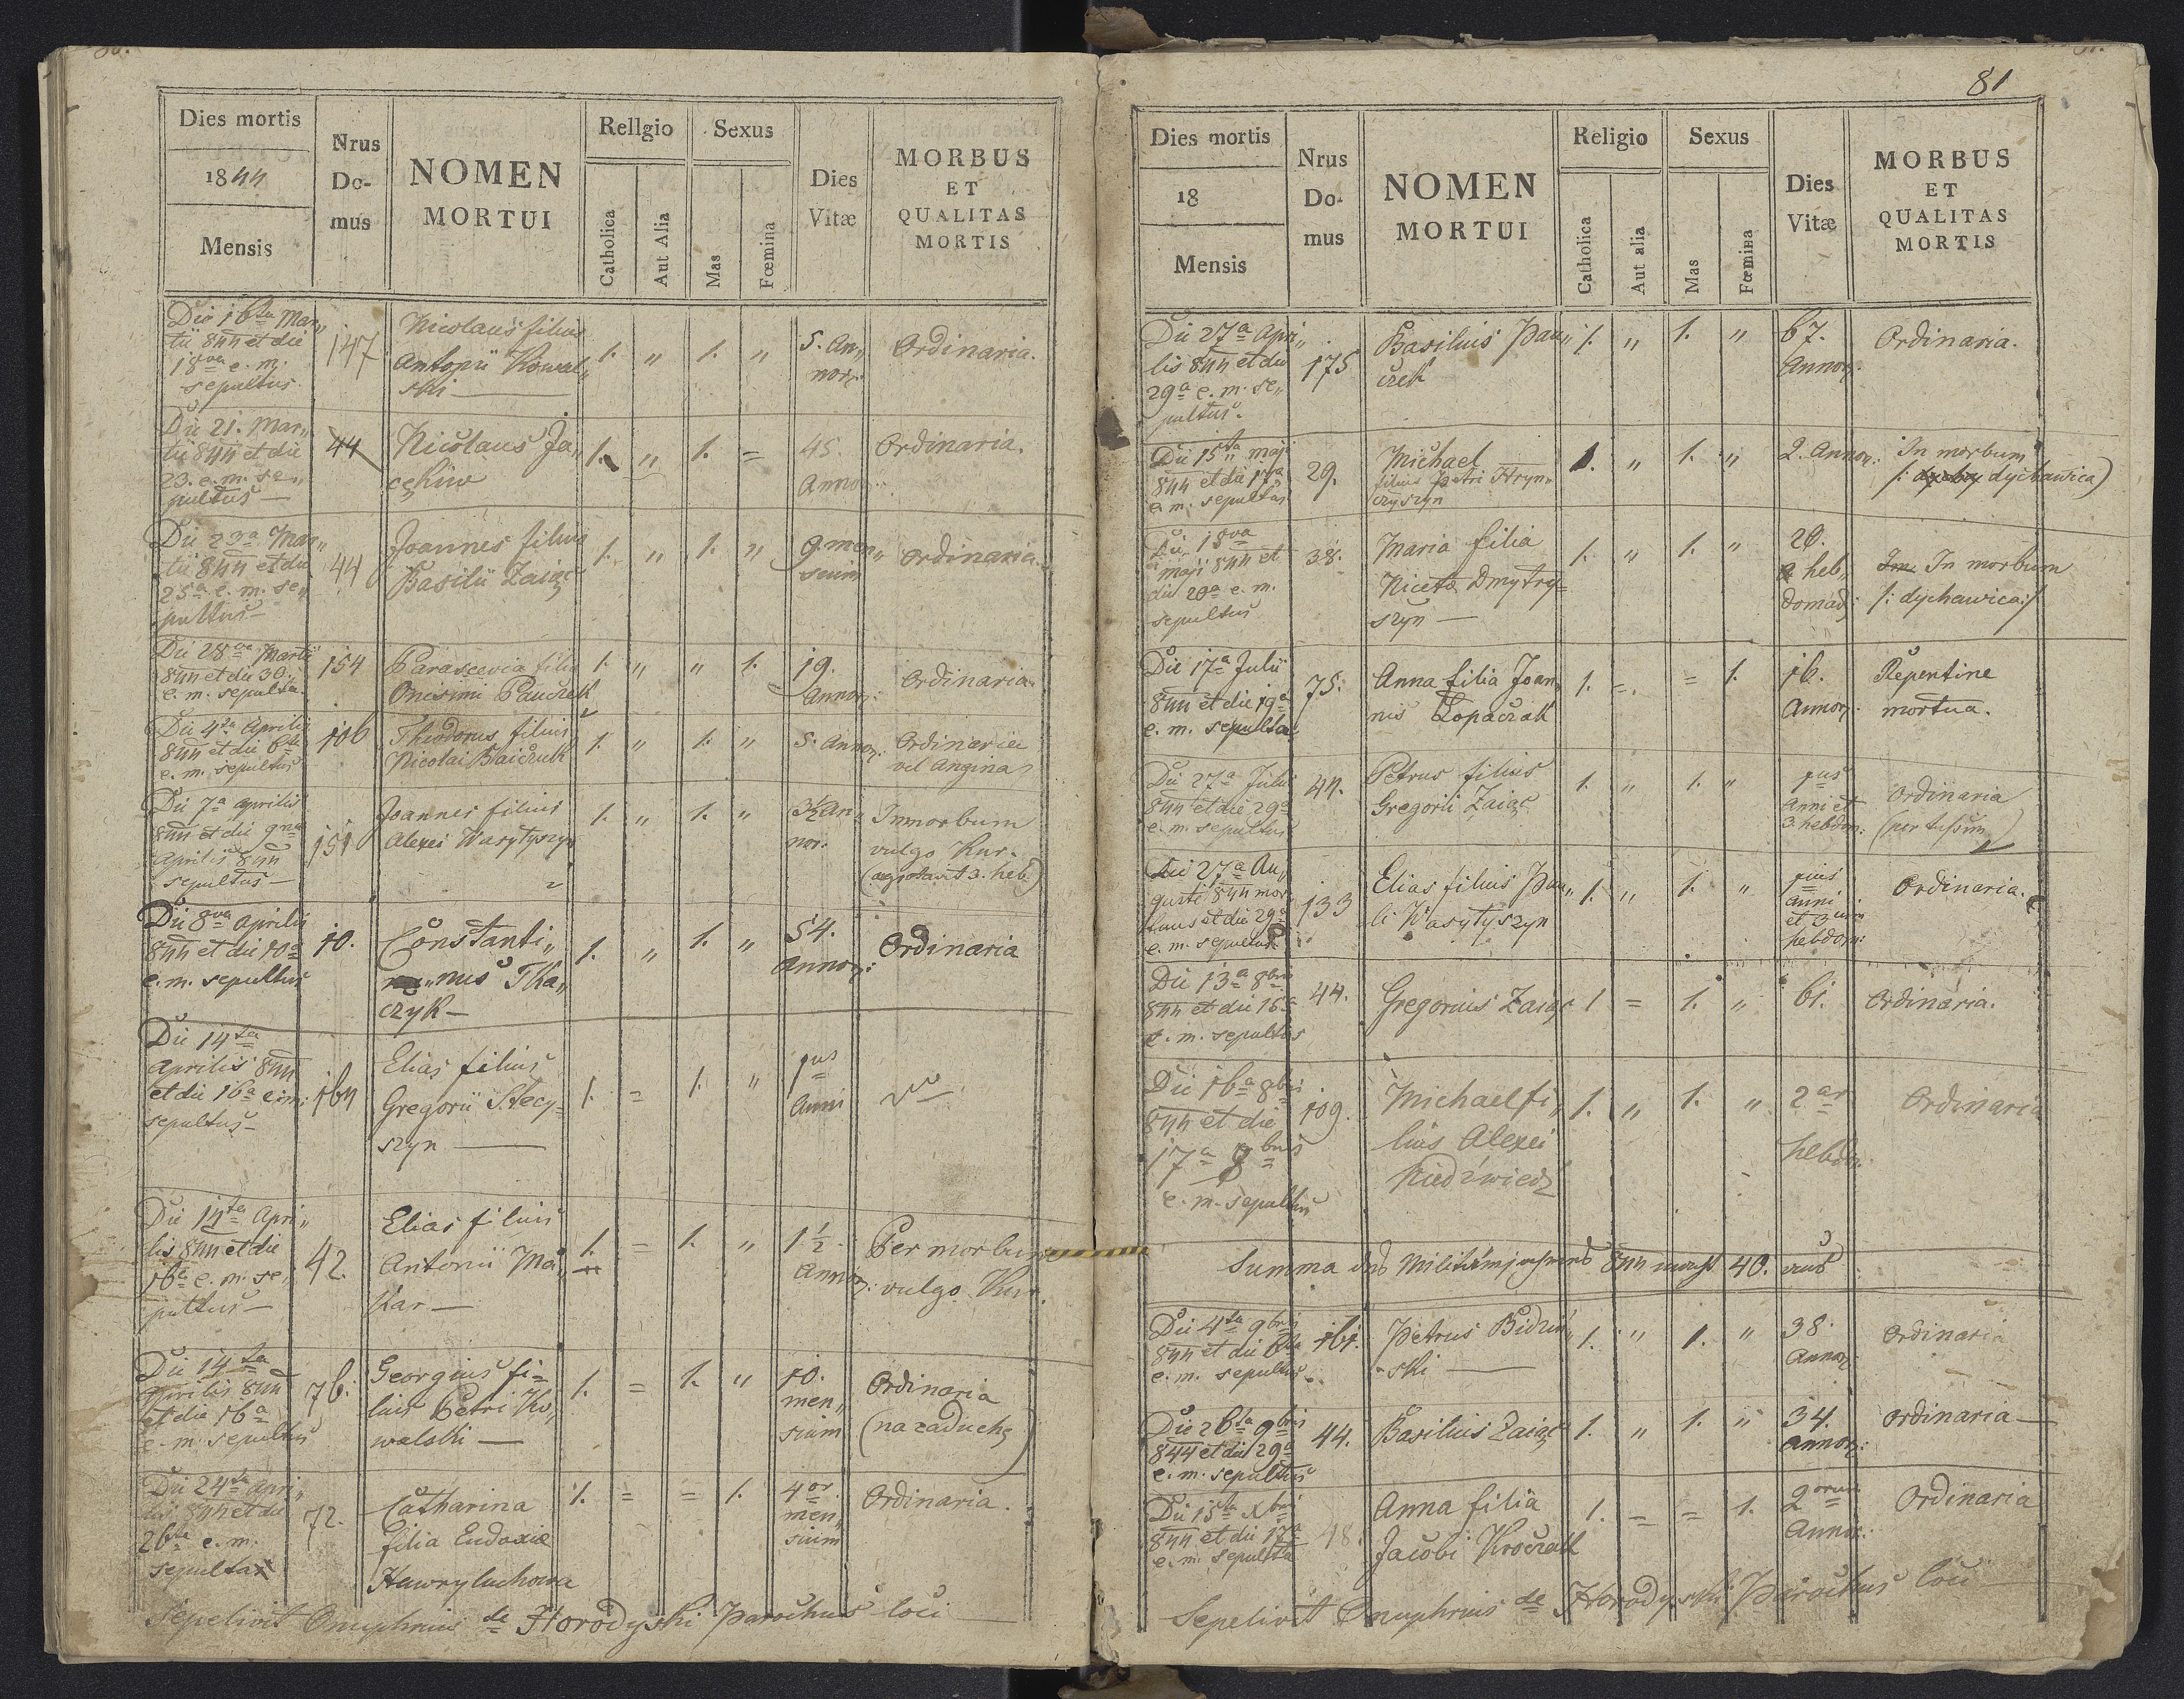 Dies mortis
1844
Mensis
Nrus
Do-
mus
NOMEN
MORTUI
Rellgio
Catholica
Aut Alia
Sexus
Mas
Fœmina
Dies
Vitæ
MORBUS
ET
QUALITAS
MORTIS
Die 16ta Mar„
tii 844 et die
18va e. m.
sepultus
147
Nicolaus filius
Antonii Kowal„
ski —
1. „ 1. „
5. An„
nor:
Ordinaria.
Die 21. Mar„
tii 844 et die
23. e. m. se„
pultus —
44
Nicolaus Ja„
cękiw
1. „ 1. =
45.
Annor:
Ordinaria.
Die 23a Mar„
tii 844 et die
25a e. m. se„
pultus —
44
Joannes filius
Basilii Zaiąc
1. „ 1. „
9. men„
sium
Ordinaria.
Die 28va Martii
844 et die 30.
e. m. sepulta
154
Parascevia filia
Onesimi Pauczek
1. „ „ 1.
19.
Annor:
Ordinaria.
Die 4ta Aprilis
844 et die 6ta
e. m. sepultus
106
Theodorus filius
Nicolai Baiczuk
1. „ 1. „
5. Annor:
Ordinaria
vel Angina
Die 7a Aprilis
844 et die 9na
Aprilis 844
sepultus —
151
Joannes filius
Alexei Wasytyszyn
1. „ 1. „
3½ An„
nor.
In morbum
vulgo Kur.
(aegrotavit 3. heb.)
Die 8va Aprilis
844 et die 10a
e. m. sepultus
10.
Constanti„
„nus Tka„
czyk —
1. „ 1. „
54.
Annor:
Ordinaria
Die 14ta
Aprilis 844
et die 16a e. m:
sepultus —
164
Elias filius
Gregorii Stecy=
szyn —
1. = 1. „
1us
Anni
Die 14ta Apri„
lis 844 et die
16a e. m. se„
pultus —
42.
Elias filius
Antonii Ma„
kar —
1. = 1. „
1½
Annor:
Per morbum
vulgo Kur.
Die 14ta
Aprilis 844
et die 16a
e. m. sepultus
76.
Georgius fi=
lius Petri Ko„
walski —
1. = 1. „
10.
men„
sium
Ordinaria
(na zaduchę)
Die 24ta Apri„
lis 844 et die
26ta e. m.
sepulta
72.
Catharina
filia Eudoxiæ
Hawryluchowa
1. = = 1.
4or.
men„
sium
Ordinaria.
Sepelivit Onuphrius de Horodyski Parochus loci
81
Dies mortis
18
Mensis
Nrus
Do-
mus
NOMEN
MORTUI
Religio
Catholica
Aut alia
Sexus
Mas
Fœmina
Dies
Vitæ
MORBUS
ET
QUALITAS
MORTIS
Die 27a Apri„
lis 844 et die
29a e. m. se„
pultus.
175
Basilius Pau„
czek
1. „ 1. „
67.
Annor:
Ordinaria.
Die 15ta maji
844 et die 17a
e. m. sepultus
29.
Michael
filius Petri Hryn„
czyszyn
1. „ 1. „
2. Annor:
In morbum
/: dychawica)
Die 18va
maji 844 et
die 20a e. m.
sepultus
38.
Maria filia
Nicetæ Dmytry=
szyn —
1. „ 1. „
20.
heb„
domad:
In morbum
/: dychawica:/
Die 17a Julii
844 et die 19a
e. m. sepulta
75.
Anna filia Joan„
nis Łopaczak
1. =. = 1.
16.
Annor:
Repentine
mortua.
Die 27a Julii
844 et die 29a
e. m. sepultus
44.
Petrus filius
Gregorii Zaiąc
1. „ 1. „
1us
anni et
3. hebdom:
Ordinaria
(per tussim)
Die 27a Au„
gusti 844 mor„
tuus et die 29a
e. m. sepultus
133
Elias filius Pau„
li Wasytyszyn
1. „ 1. „
1ius
anni
et 3ium
hebdom:
Ordinaria.
Die 13a 8bris
844 et die 15a
e. m. sepultus
44.
Gregorius Zaiąc
1 = 1. „
61.
Ordinaria.
Die 16a 8bris
844 et die
17a 8bris
e. m. sepultus
109.
Michael fi„
lius Alexei
Niedźwiedź
1. „ 1. „
2ar
hebdo:
Ordinaria
Summa 844 40.
Die 4ta 9bris
844 et die 6ta
e. m. sepultus.
161.
Petrus Bidziń„
„ski —
1. „ 1. „
38.
Annor:
Ordinaria
Die 26ta 9bris
844 et die 29a
e. m. sepultus
44.
Basilius Zaiąc
1. „ 1. „
34.
Annor:
Ordinaria —
Die 15ta Xbris
844 et die 17a
e. m. sepulta
48.
Anna filia
Jacobi Kroczak
1. = = 1.
2orum
Annor:
Ordinaria
Sepelivit Onuphrius de Horodyski Parochus loci